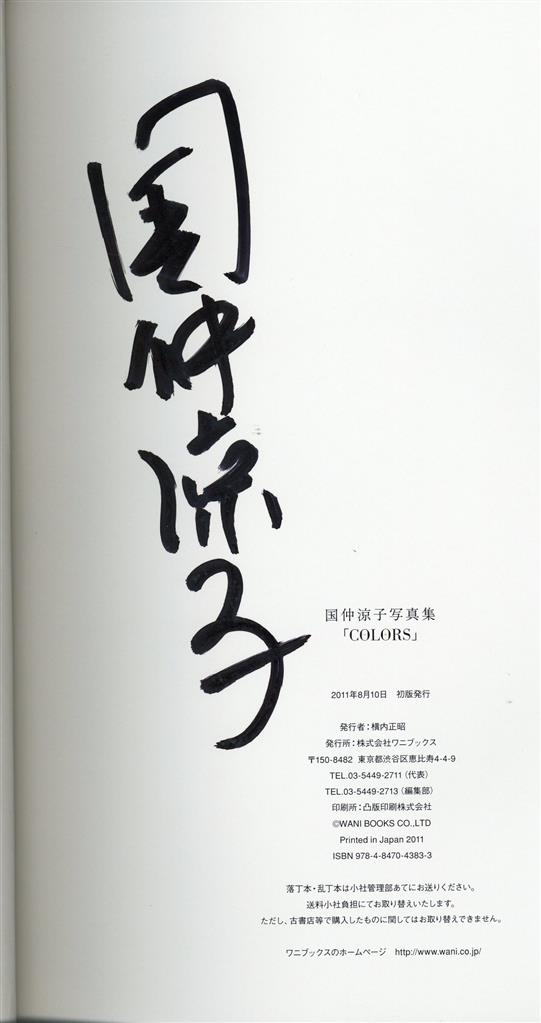 国仲涼子
国仲涼子写真集
「COLORS」
2011年8月10日　初版発行
発行者：横内正昭
発行所：株式会社ワニブックス
〒150-8482　東京都渋谷区恵比寿4-4-9
TEL.03-5449-2711（代表）
TEL.03-5449-2713（編集部）
印刷所：凸版印刷株式会社
©WANI BOOKS CO.,LTD
Printed in Japan 2011
ISBN 978-4-8470-4383-3
落丁本・乱丁本は小社管理部あてにお送りください。
送料小社負担にてお取り替えいたします。
ただし、古書店等で購入したものに関してはお取り替えできません。
ワニブックスのホームページ　http://www.wani.co.jp/